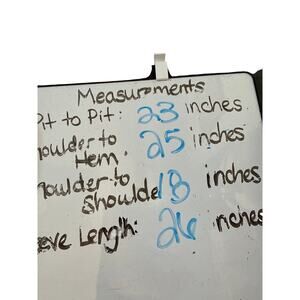 Measurements
Pit to Pit: 23 inches
houlder to 25 inches
Hem:
houlder to
Shoulde 18 inches
eeve Length: 26 nches